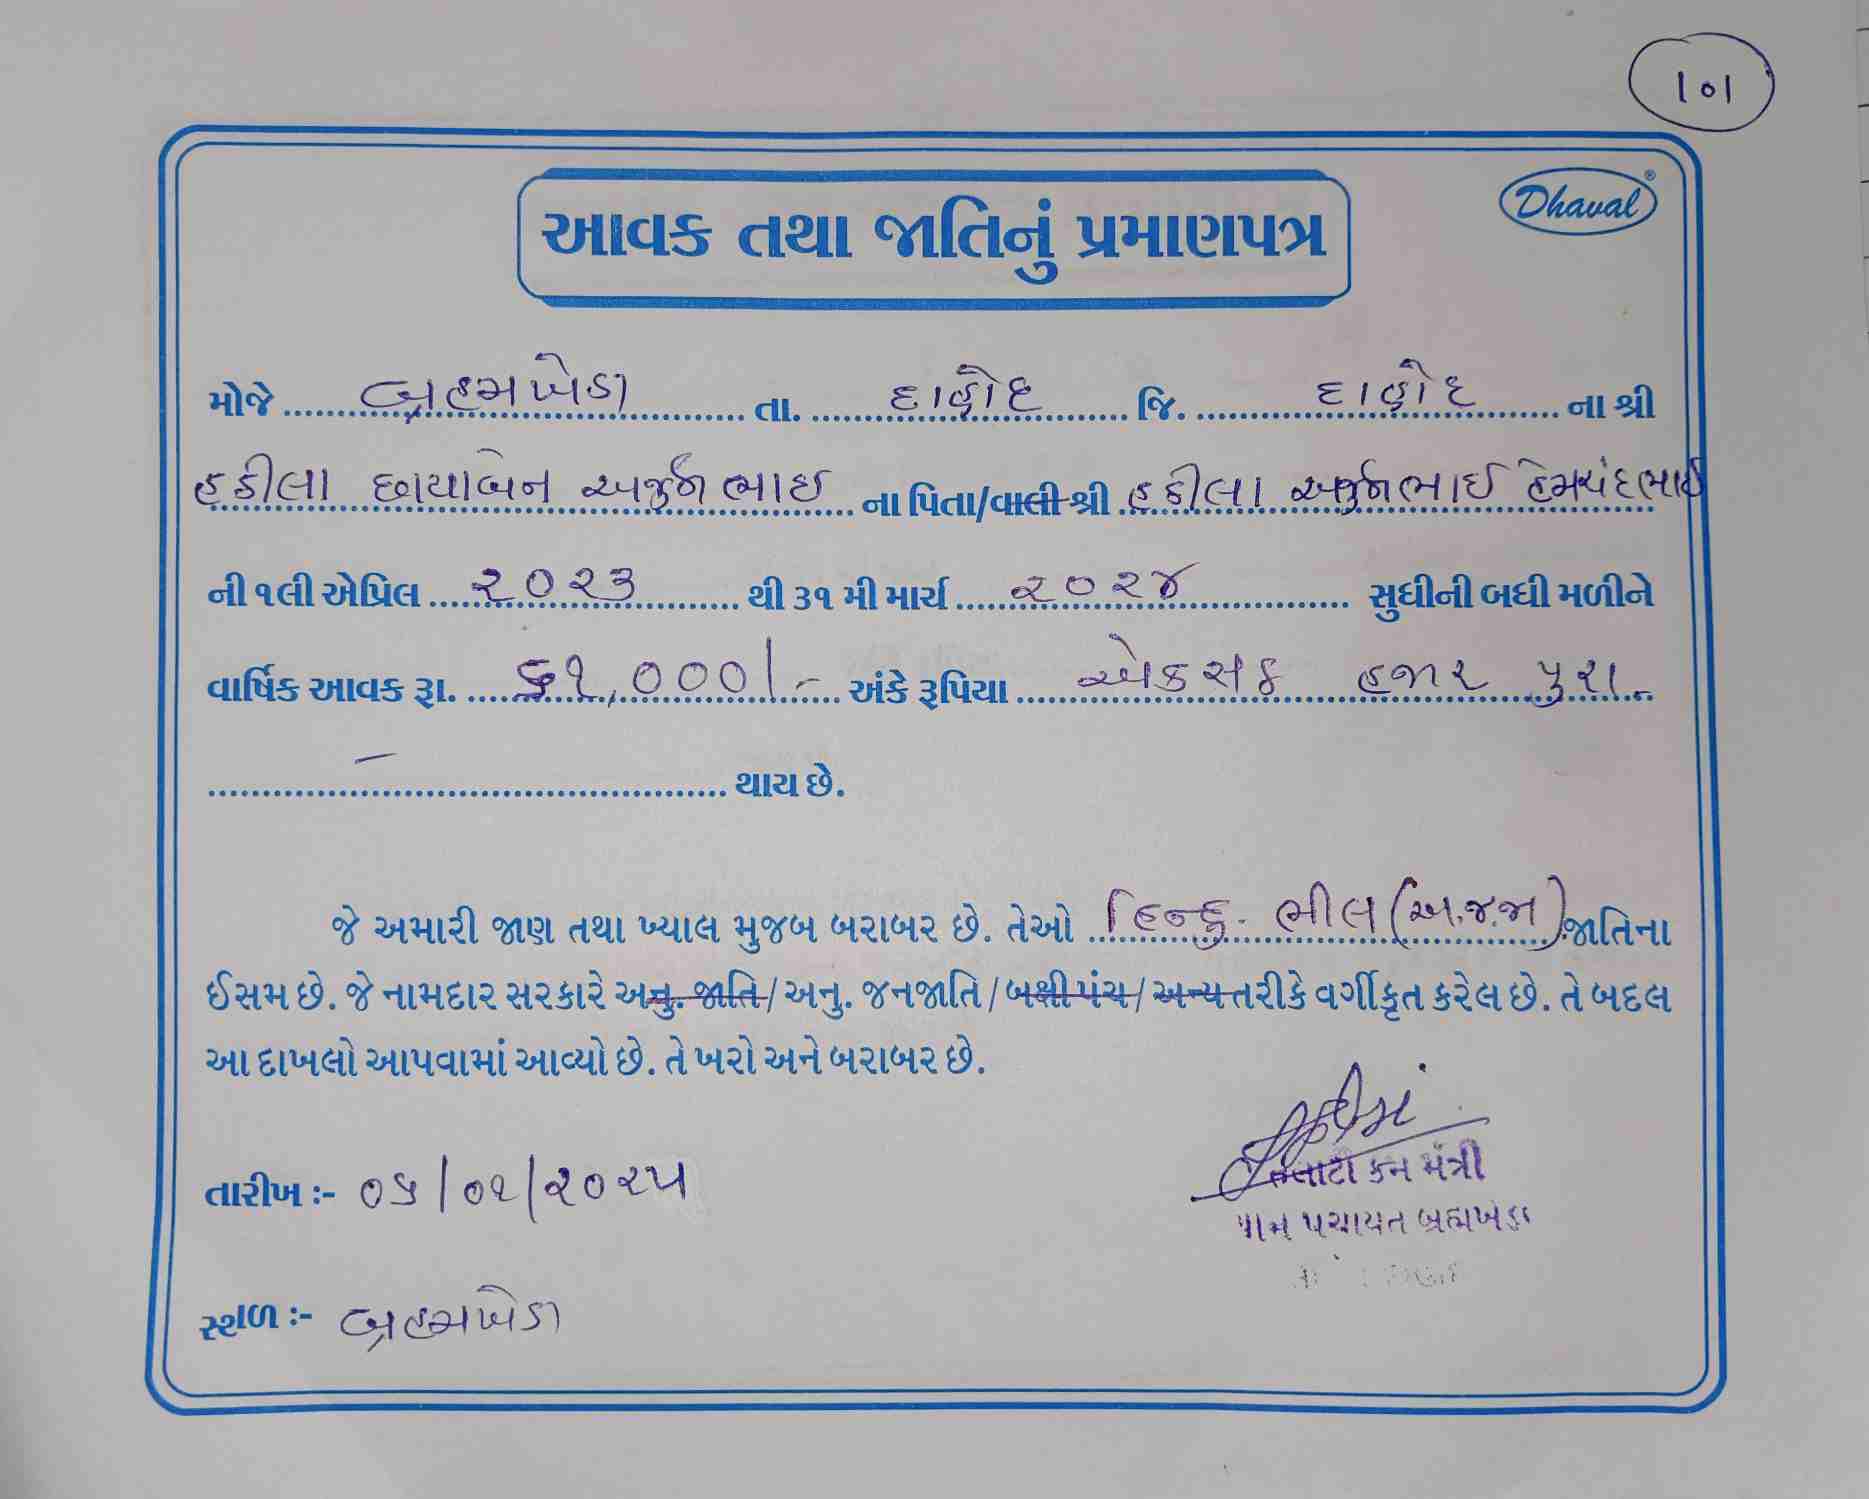 101
Dhaval
આવક તથા જાતિનું પ્રમાણપત્ર
મોજે બ્રહમખેડા તા. દાહોદ જિ. દાહોદ ના શ્રી
હઠીલા છાયાબેન અર્જુનભાઇ ના પિતા/વાલી શ્રી હઠીલા અર્જુનભાઇ હેમચંદભાઇ
ની ૧લી એપ્રિલ ૨૦૨૩ થી ૩૧ મી માર્ચ ૨૦૨૪ સુધીની બધી મળીને
વાર્ષિક આવક રૂા. ૬૧,૦૦૦/- અંકે રૂપિયા એકસઠ હજાર પુરા.
- થાય છે.
જે અમારી જાણ તથા ખ્યાલ મુજબ બરાબર છે. તેઓ હિન્દુ. ભીલ (અ.જ.જા) જાતિના
ઈસમ છે. જે નામદાર સરકારે અનુ. જાતિ/ અનુ. જનજાતિ/ બક્ષીપંચ/ અન્ય તરીકે વર્ગીકૃત કરેલ છે. તે બદલ
આ દાખલો આપવામાં આવ્યો છે. તે ખરો અને બરાબર છે.
તલાટી કમ મંત્રી
તારીખ :- ૦૬/૦૧/૨૦૨૫
ગ્રામ પંચાયત બ્રહ્મખેડા
સ્થળ :- બ્રહમખેડા